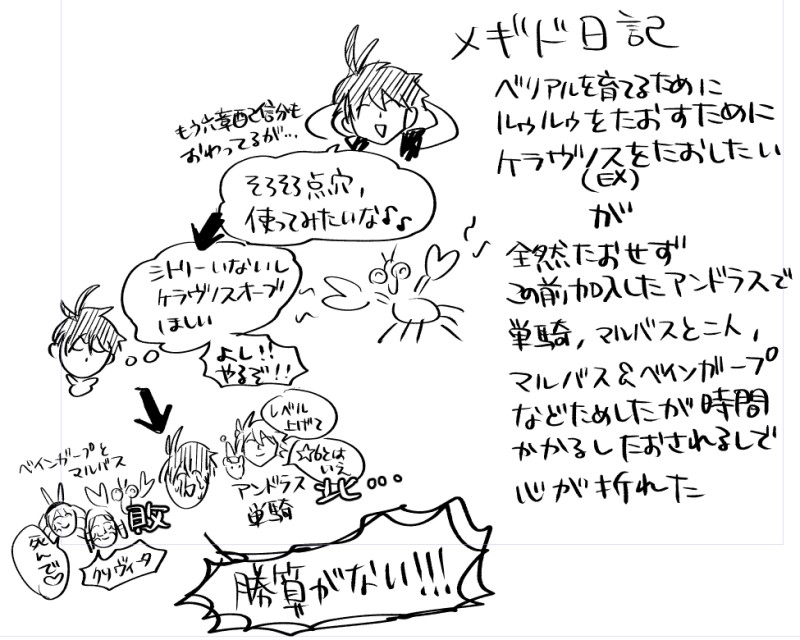 メギド日記
ベリアルを育てるために
ルゥルゥをたおすために
ケラヴノスをたおしたい
(EX)
が
全然たおせず
この前加入したアンドラスで
単騎,マルバスと二人,
マルバス&ベインガープ
などためしたが時間
かかるしたおされるしで
心が折れた
もう六章配信分も
おわってるが…
そろそろ点穴,
使ってみたいな♪♪
ミトリーいないし
ケラヴノスオーブ
ほしい
よし!!
やるぞ!!
レベル
上げて
☆6とは
いえ
アンドラス
単騎
此…
ベインガープと
マルバス
敗
死んで♡
クリヴィータ
勝算がない!!!